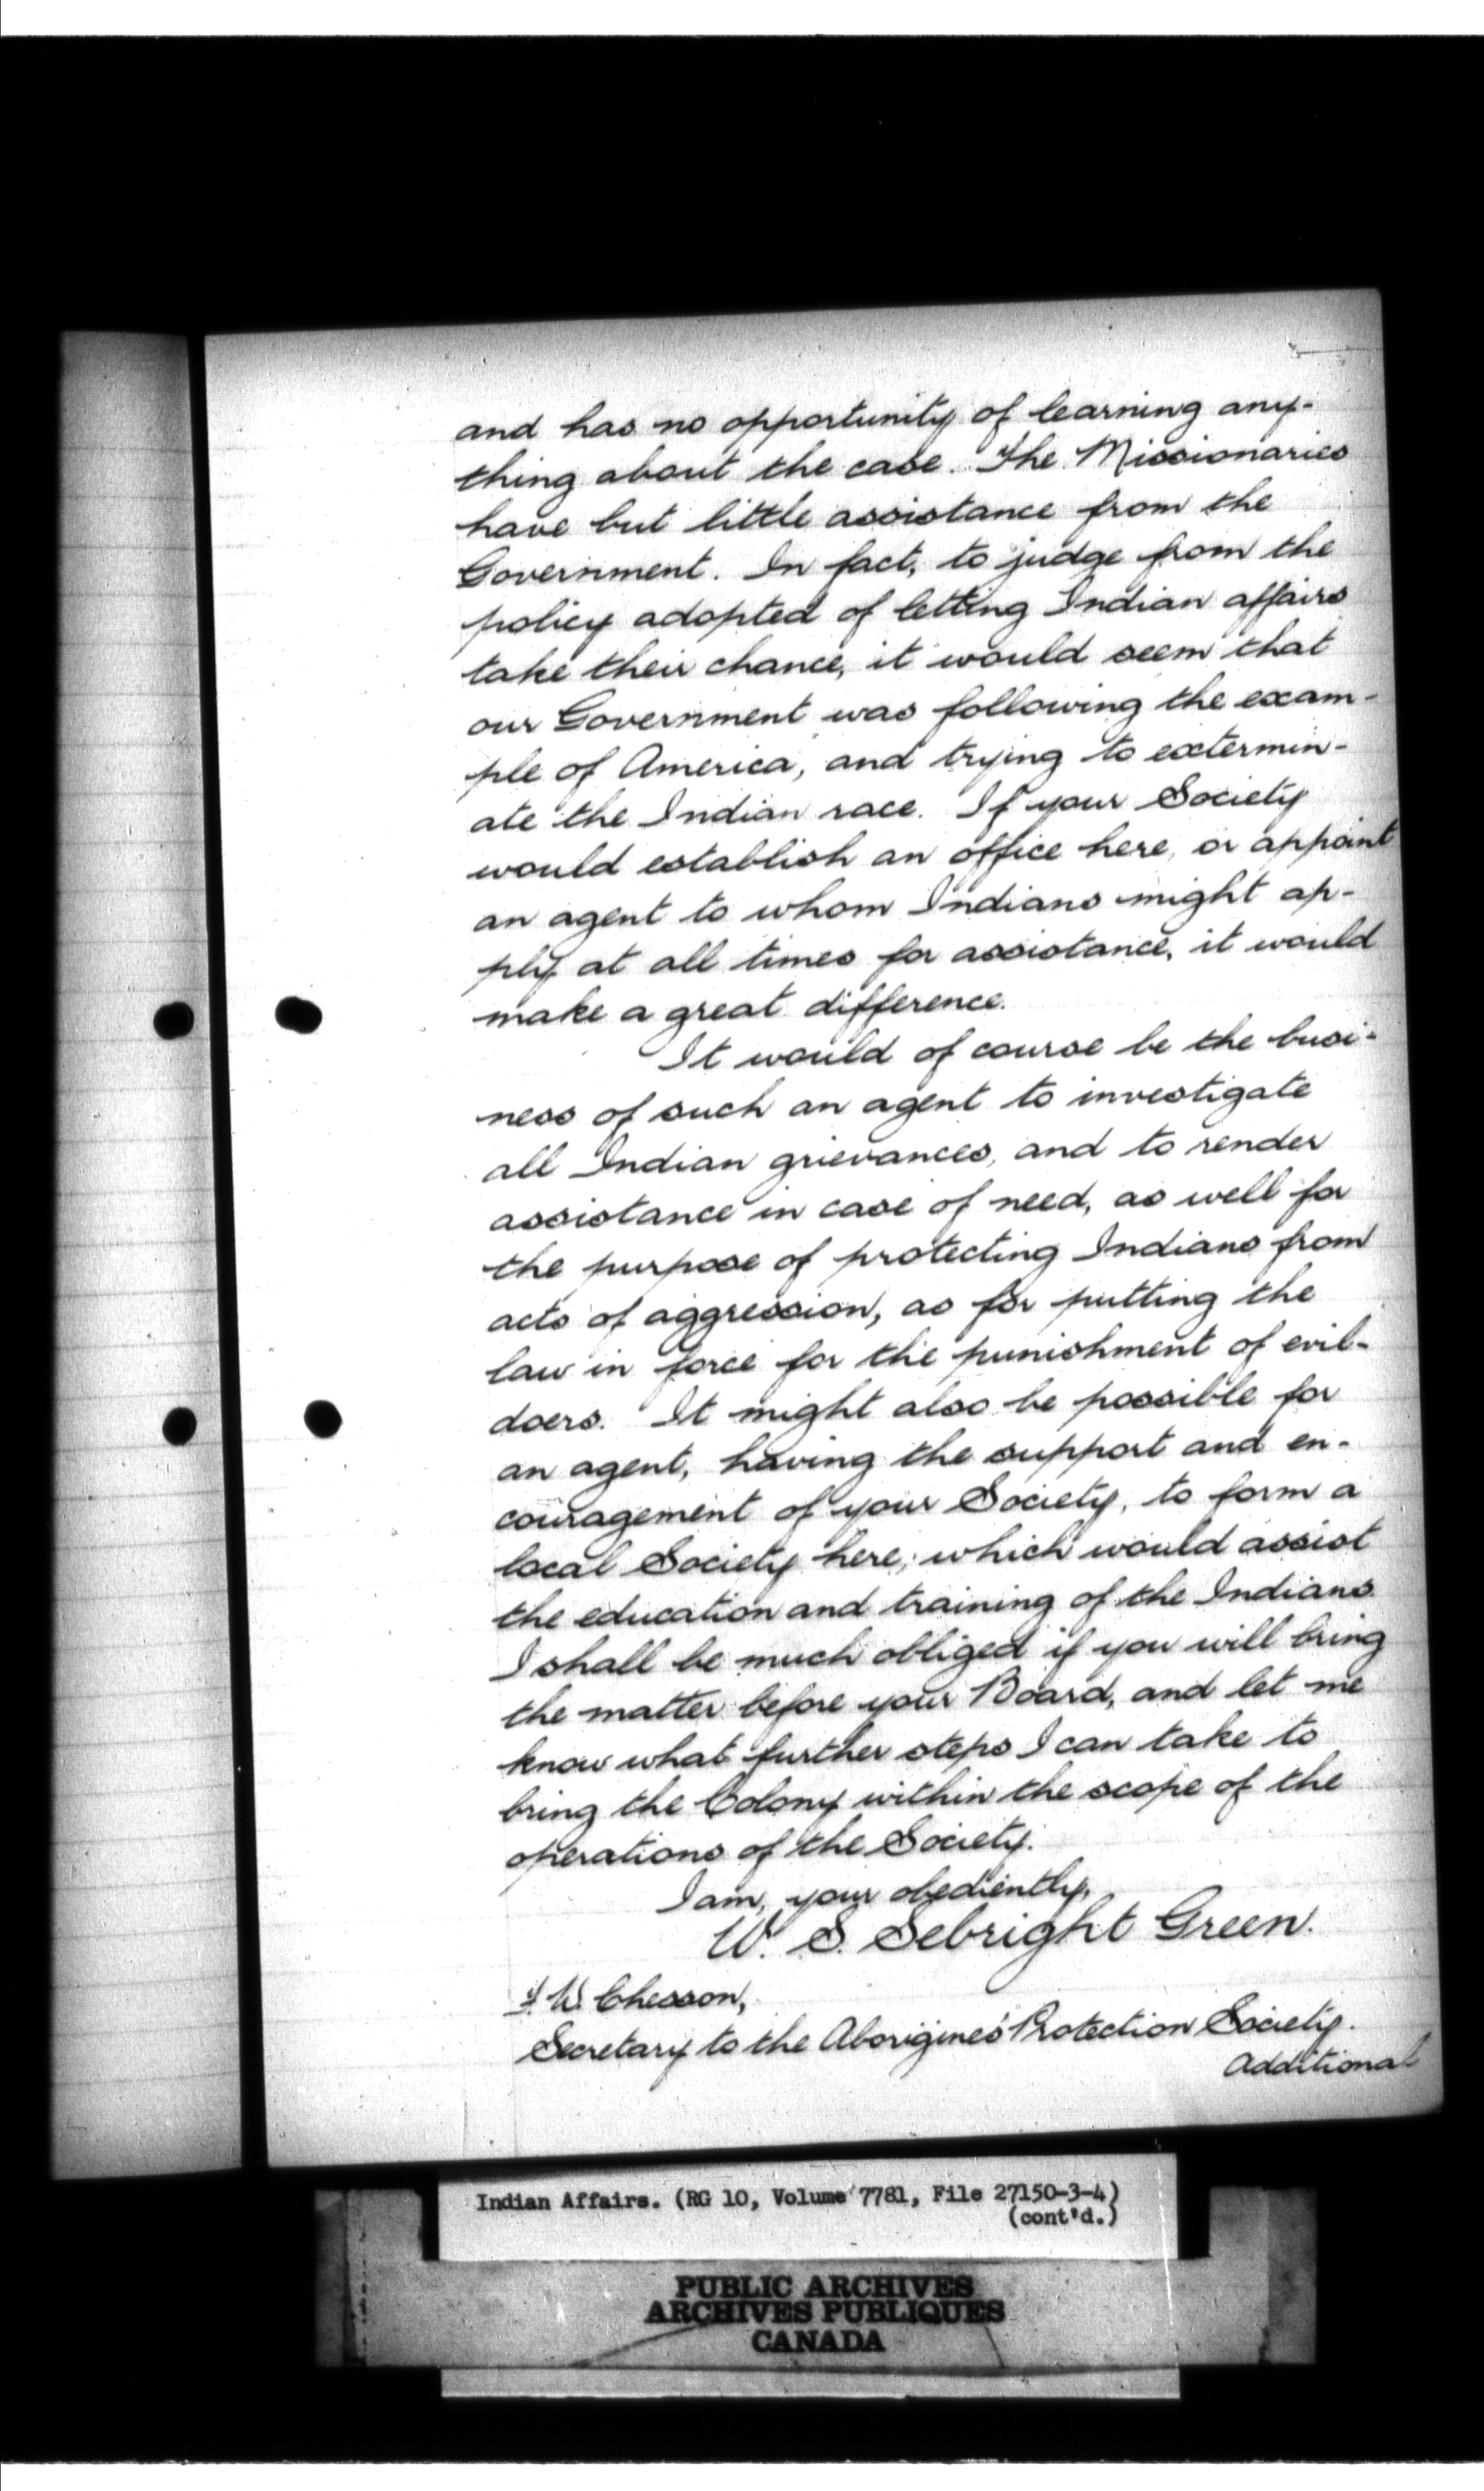 and has no opportunity of learning any-
thing about the case. The Missionaries
have but little assistance from the
Government. In fact, to judge from the
policy adopted of letting Indian affairs
take their chance, it would seem that
our Government was following the exam-
ple of America, and trying to extermin-
ate the Indian race. If your Society
would establish an office here, or appoint
an agent to whom Indians might ap-
ply at all times for assistance, it would
make a great difference.
It would of course be the busi-
ness of such an agent to investigate
all Indian grievances, and to render
assistance in case of need, as well for
the purpose of protecting Indians from
acts of aggression, as for putting the
law in force for the punishment of evil-
doers. It might also be possible for
an agent, having the support and en-
couragement of your Society, to form a
local Society here, which would assist
the education and training of the Indians
I shall be much obliged if you will bring
the matter before your Board, and let me
know what further steps I can take to
bring the Colony within the scope of the
operations of the Society.
I am, your obediently,
W. S. Sebright Green.
F. W. Chesson,
Secretary to the Aborigines' Protection Society.
Additional
Indian Affairs. (RG 10, Volume 7781, File 27150-3-4)
(cont'd.)
PUBLIC ARCHIVES
ARCHIVES PUBLIQUES
CANADA